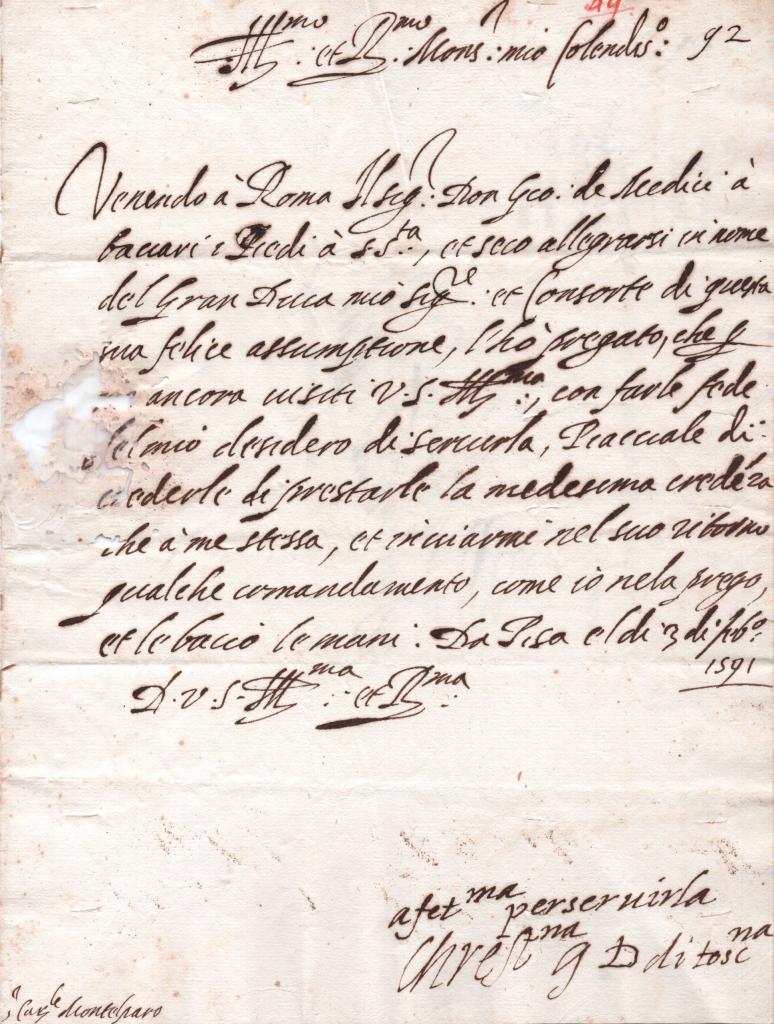 44
Ill.mo et R.mo Mons: mio Colendis.o: 92
Venendo à Roma Il sig.r Don Gio: de Medici à
bacciari i Piedi à S S.ta, et seco allegrarsi in nome
del Gran Duca mio Sig.re et Consorte di questa
sua felice assumptione, l'ho pregato, che
ancora visiti V.S. Ill.ma, con farle fede
del mio desidero di servirla, Piacciale di
crederle di prestarle la medesima credéza
che à me stessa, et inviarmi nel suo ritorno
qualche comandamento, come io nela prego,
et le bacio le mani: Da Pisa el di 3 di feb.o:
1591
D. V. S. Ill.ma: et R.ma:
afet.ma per servirla
Chrest.na g D di tosc.na
s.r Car.le Montelparo